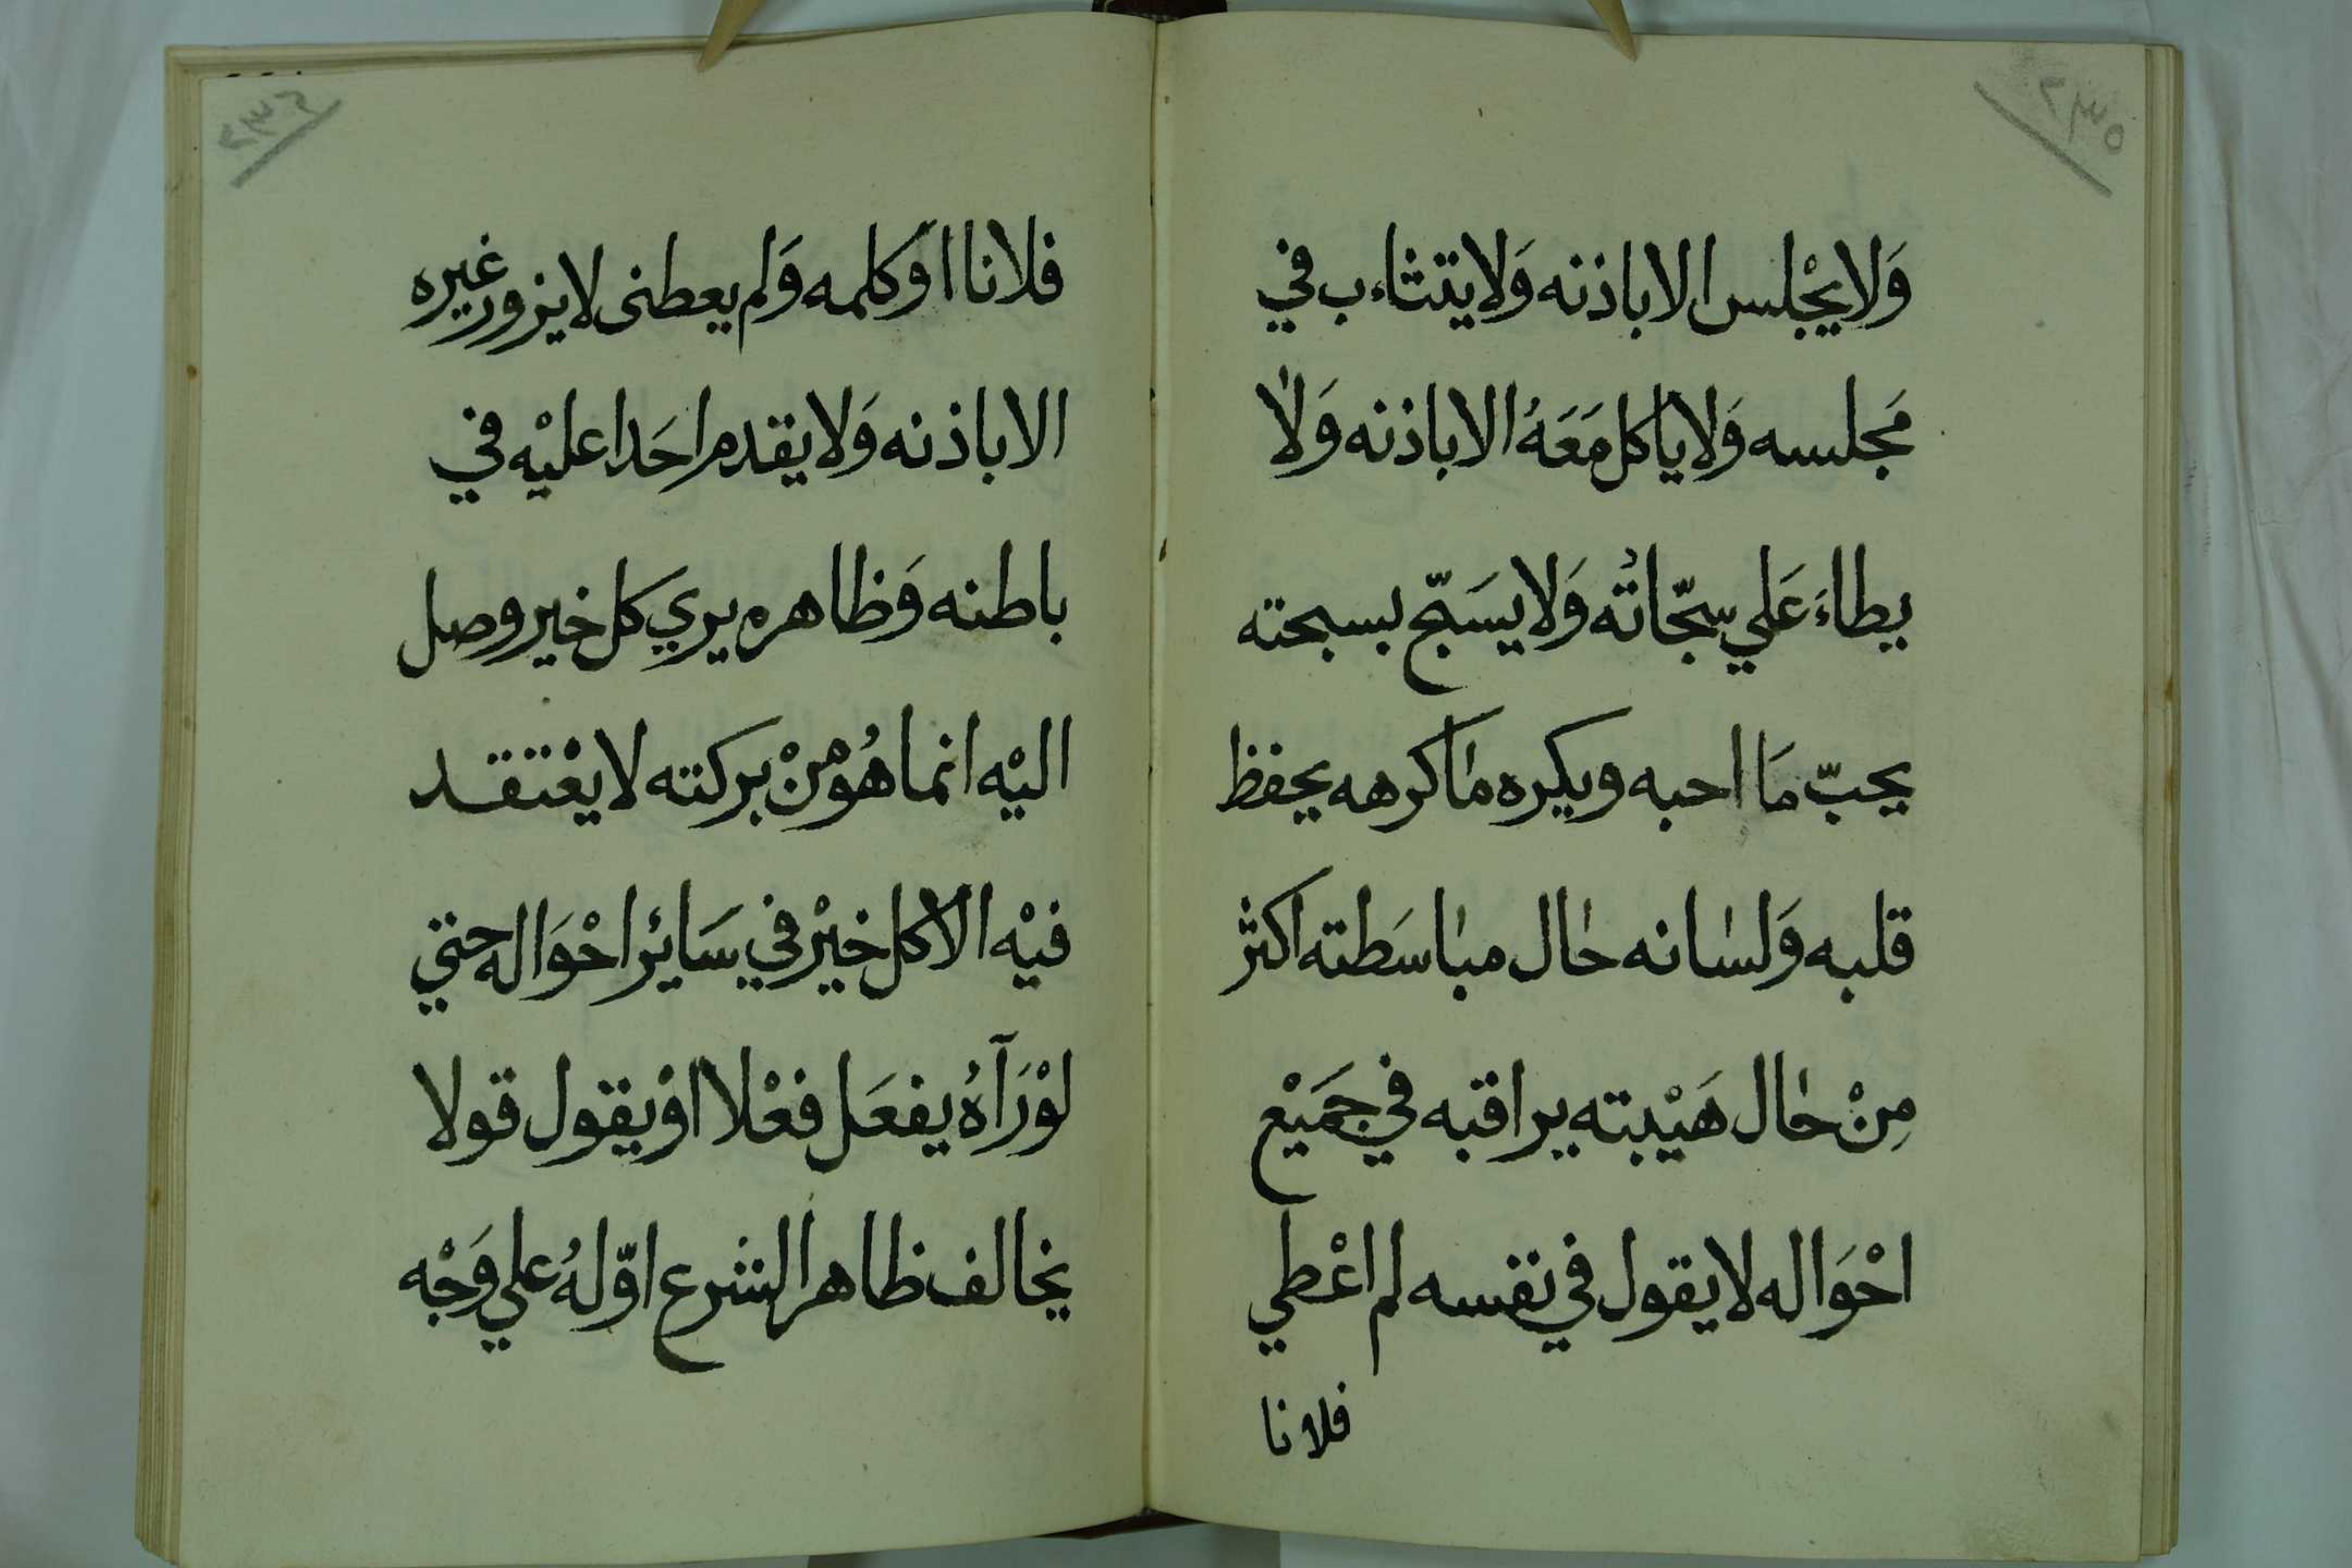 ٢٣٥
وَلا يجْلس الا باذنه وَلا يتثاءب في
مَجلسه وَلا ياكل مَعَهُ الا باذنه وَلا
يطاءَ عَلي سجّاتُه وَلا يسَبّح بسبحته
يحبّ مَا احبه ويكره ما كرهه يحفظ
قلبه وَلسانه حال مباسَطته اكثر
مِنْ حال هَيْبته يراقبه في جَمَيْع
احْوَاله لا يقول في نفسه لم اعْطي
فلانا
٢٣٦
فلانا اوَ كلمه وَلم يعطنى لا يزور غيره
الا باذنه وَلا يقدم احَدا عليْه في
باطنه وَظاهره يري كل خير وصل
اليْه انما هُو منْ بركته لا يعْتقد
فيْه الا كل خيْر في سَايئر احْوَاله حتي
لوْ رَآهُ يفعَل فعْلا اوْ يقول قولا
يخالف ظاهر الشرع اوّلهُ علي وَجْه